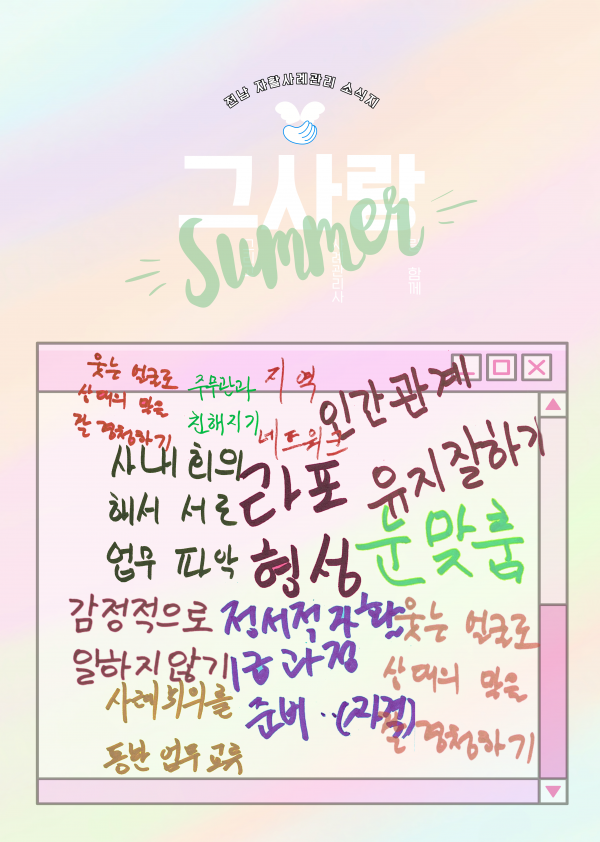 전남 자활사례관리 소식지
그사람
Summer
관리사
함께
웃는 얼굴로
상대의 말을
잘 경청하기
주무관과
친해지기
지역
네트워크
인간관계
유지잘하기
사내회의
해서 서로
업무 파악
라포
형성
눈맞춤
감정적으로
일하지않기
정서적 자활
1급 과정
준비..(자격)
웃는 얼굴로
상대의 말을
잘 경청하기
사례회의를
동반 업무 교류